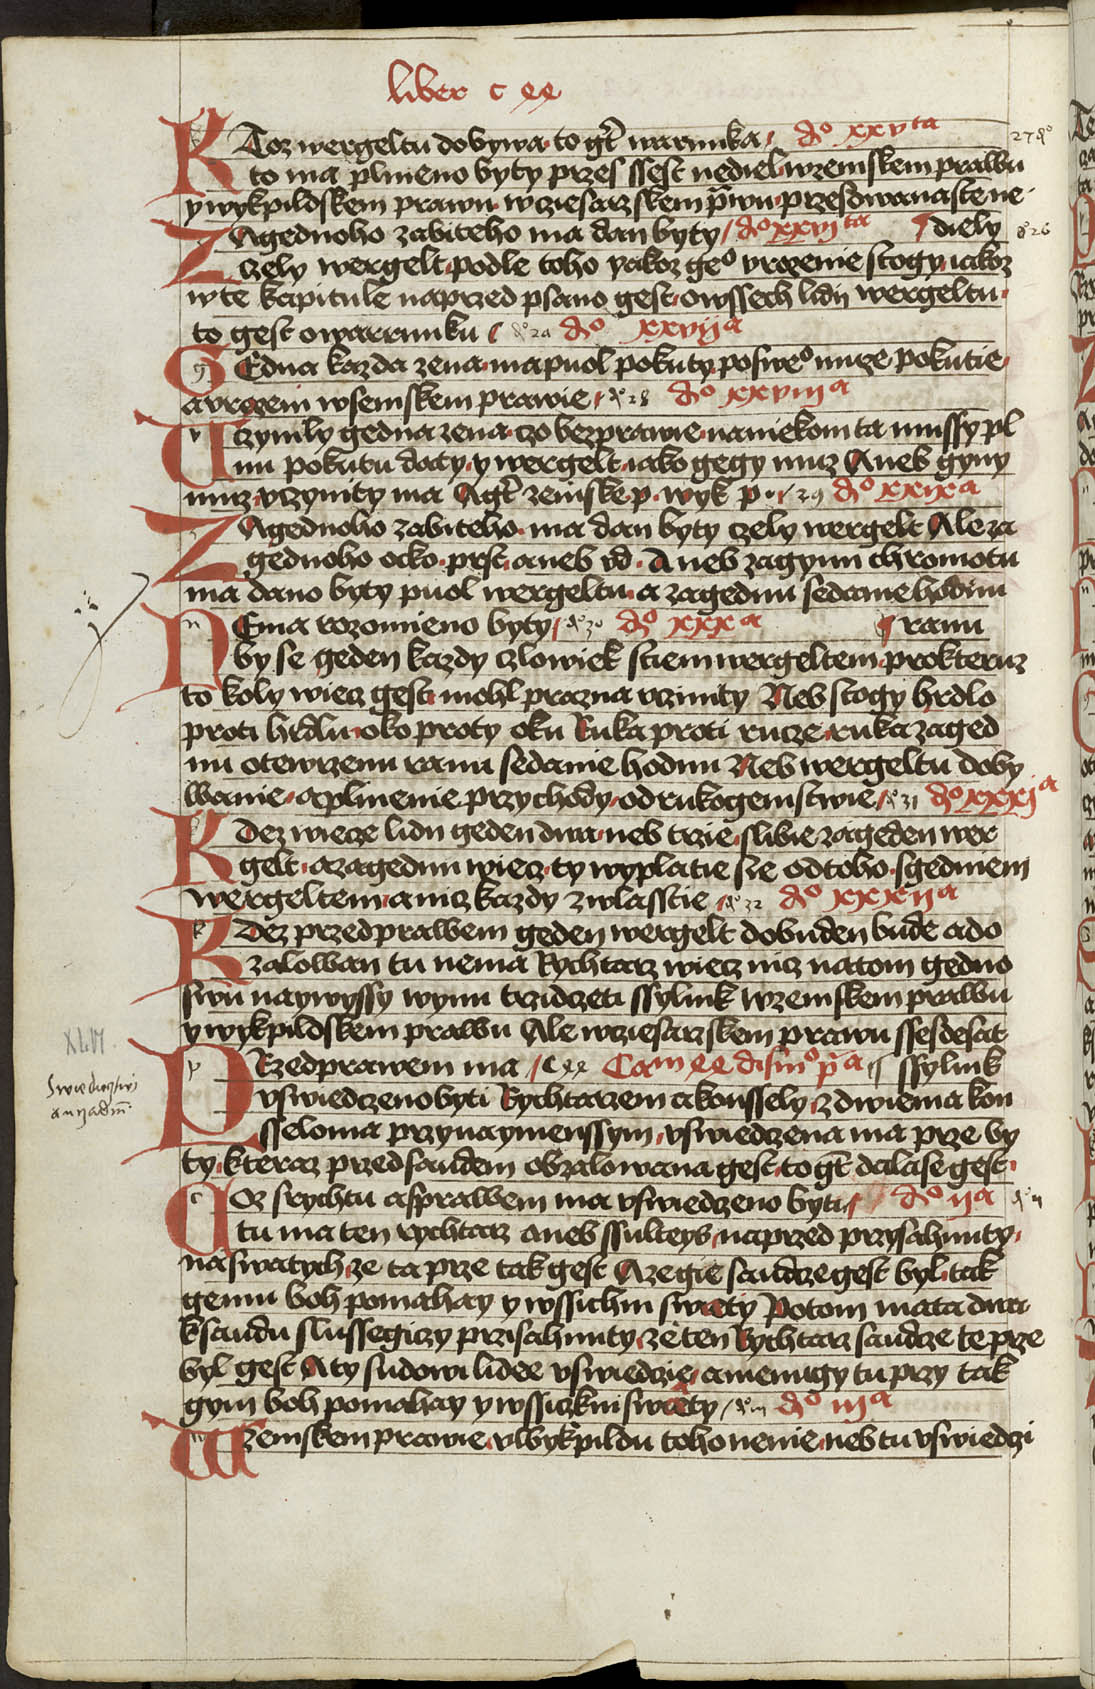 liber c ee
KToz wergeltu dobywa· to gt̄ warunka· do xxvta 27 do
to ma plneno byty przes ssest nediel· wzemskem prawu
y wykpildskem prawu· w cziesarzskem p̄wu· przes dwanaste ne·
ZAgednoho zabiteho ma dan byty / do xxvi ta ¶ diely do 26
czely wergelt· podle toho yakoz geo urozenie stogy· iakoz
w te kapitule naprzed psano gest· owssech lidij wergeltu·
to gest owarrunku do xxvija
GEdna kazda zena· ma puol pokuty po sweo muze· pokutie·
a urozem w semskem prawie· do 28 do xxviij a
Uczynily gedna zena· czo bezprawie· naniekom ta mussy pl
nu pokutu daty· y wergelt· iako gegy muz Aneb gyny
muz uczynity ma Agt̄ zemske· p· wyk p· 29 do xxix a
ZAgednoho zabiteho· ma dan byty czely wergelt Ale za
gednoho ocko· prst· aneb ud· Aneb zagynu chromotu
ma dano byty puol wergeltu· a zagednu sedanie hodnu
NEma rozomieno byty / do 30 do xxx a ¶ ranu
by se geden kazdy czlowiek stiem wergeltem· prokteruz
to koly wiecz gest· mohl prazna uczinity Neb stogy hrdlo
proti hrdlu· oko proty oku Ruka proti rucze· ruka zaged
nu otewrzenu ranu sedanie hodnu Neb wergeltu doby
wanie· a plnenie przychody· od rukogemstwie· do 31 do xxxj a
KDez wiecze lidij geden dwa· neb trzie· slibie za geden wer
gelt· a za gednu wiecz· ty wyplatie sie od toho· s gedniem
wergeltem· a nicz kazdy zwlasstie· do 32 do xxxij a
KDez przed prawem geden wergelt dobuden bude a do
zalowan tu nema Rychtarz wiecz nicz na tom gedno
swu naywyssy wynu trzidczeti ssylink w zemskem prawu
y wykpildskem prawu Ale w cziesarzskem prawu ssesdesat
PRzed prawem ma / C ee Cam ee disīno p̄a ¶ ssylink
XLVI
uswiedczeno byti Rychtarzem a konssely· z dwiema kon
sseloma przynaymenssym· uswiedczena ma prze by
ty· kteraz przed saudem obzalowana gest· to gt̄ dala se gest·
COz s rychtu a s prawem ma uswiedczeno byti· do ija do ij
tu ma ten rychtarz aneb ssulteys· naprzed przysahnuty·
na swatych· ze ta prze tak gest A ze gie saudcze gest byl· tak
gemu boh pomahay y wssichni swiety Potom mata dwa
k saudu slussegiczy przisahnuty· ze ten Rychtarz saudcze te prze
byl gest A ty sudowi lidee uswiedczie· a menugy tu przy tak
gym boh pomahay y wssiczkni swiety / do iij do iij a
Wzemskem prawie· u wykpildu toho nenie· neb tu uswiedczi